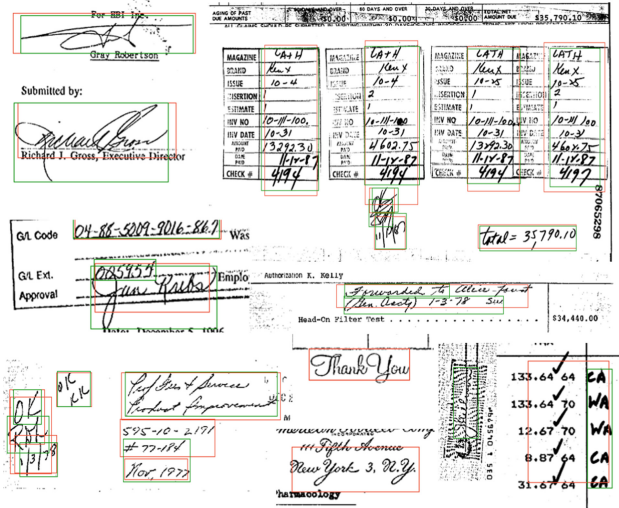 For HBI Inc.
Gray Robertson
Submitted by:
Richard J. Gross, Executive Director
AGING OF PAST DUE AMOUNTS
AND OVER
$0.00
60 DAYS AND OVER
$0.00
30 DAYS AND OVER
$0.00
TOTAL NET AMOUNT DUE
$35,790.10
MAGAZINE LA+H
BRAND Kent
ISSUE 10-4
INSERTION 1
ESTIMATE 1
INV NO 10-111-100,
INV DATE 10-31
AMOUNT PAID 13292.30
DATE PAID 11-14-87
CHECK # 4194
MAGAZINE LA+H
BRAND Kent
ISSUE 10-4
INSERTION 2
ESTIMATE 1
INV NO 10-111-100
INV DATE 10-31
AMOUNT PAID 4602.75
DATE PAID 11-14-87
CHECK # 4194
MAGAZINE LATH
BRAND Kent
ISSUE 10-25
INSERTION 1
ESTIMATE 1
INV NO 10-111-100,
INV DATE 10-31
AMOUNT PAID 13292.30
DATE PAID 11-14-87
CHECK # 4194
MAGAZINE LATH
Kent
10-25
2
1
10-111-100
10-31
4602.75
11-14-87
4197
87065298
total = 35,790.10
G/L Code 04-88-5009-9016-867 Was
G/L Ext. 005955 Emplo
Approval June Krebs
Date: December 5, 1996
Authorization K. Kelly
Forwarded to
(Gen. Acctg) 1-3-78
Head-On Filter Test $34,440.00
OK
OK
1/3/78
Prof Fees + Service
Product Improvement
595-10-2171
# 77-184
Nov, 1977
Thank You
111 Fifth Avenue
New York 3, N.Y.
Pharmacology
133.64 64 CA
133.64 70 WA
12.67 70 WA
8.87 64 CA
31.67 64 CA